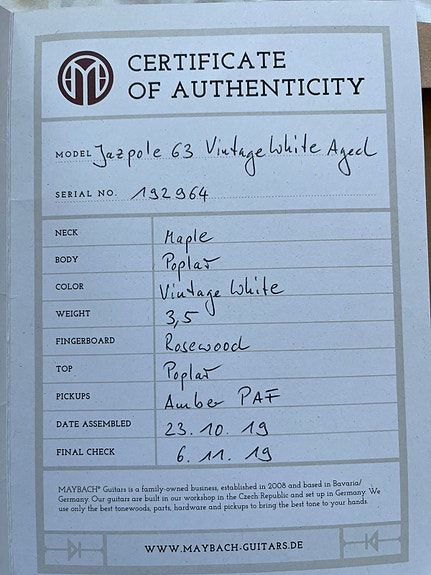 CERTIFICATE
OF AUTHENTICITY
MODEL Jazpole 63 Vintage White Aged
SERIAL NO. 192964
NECK Maple
BODY Poplar
COLOR Vintage White
WEIGHT 3,5
FINGERBOARD Rosewood
TOP Poplar
PICKUPS Amber PAF
DATE ASSEMBLED 23.10.19
FINAL CHECK 6.11.19
MAYBACH® Guitars is a family-owned business, established in 2008 and based in Bavaria/
Germany. Our guitars are built in our workshop in the Czech Republic and set up in Germany. We
use only the best tonewoods, parts, hardware and pickups to bring the best tone to your hands.
WWW.MAYBACH-GUITARS.DE